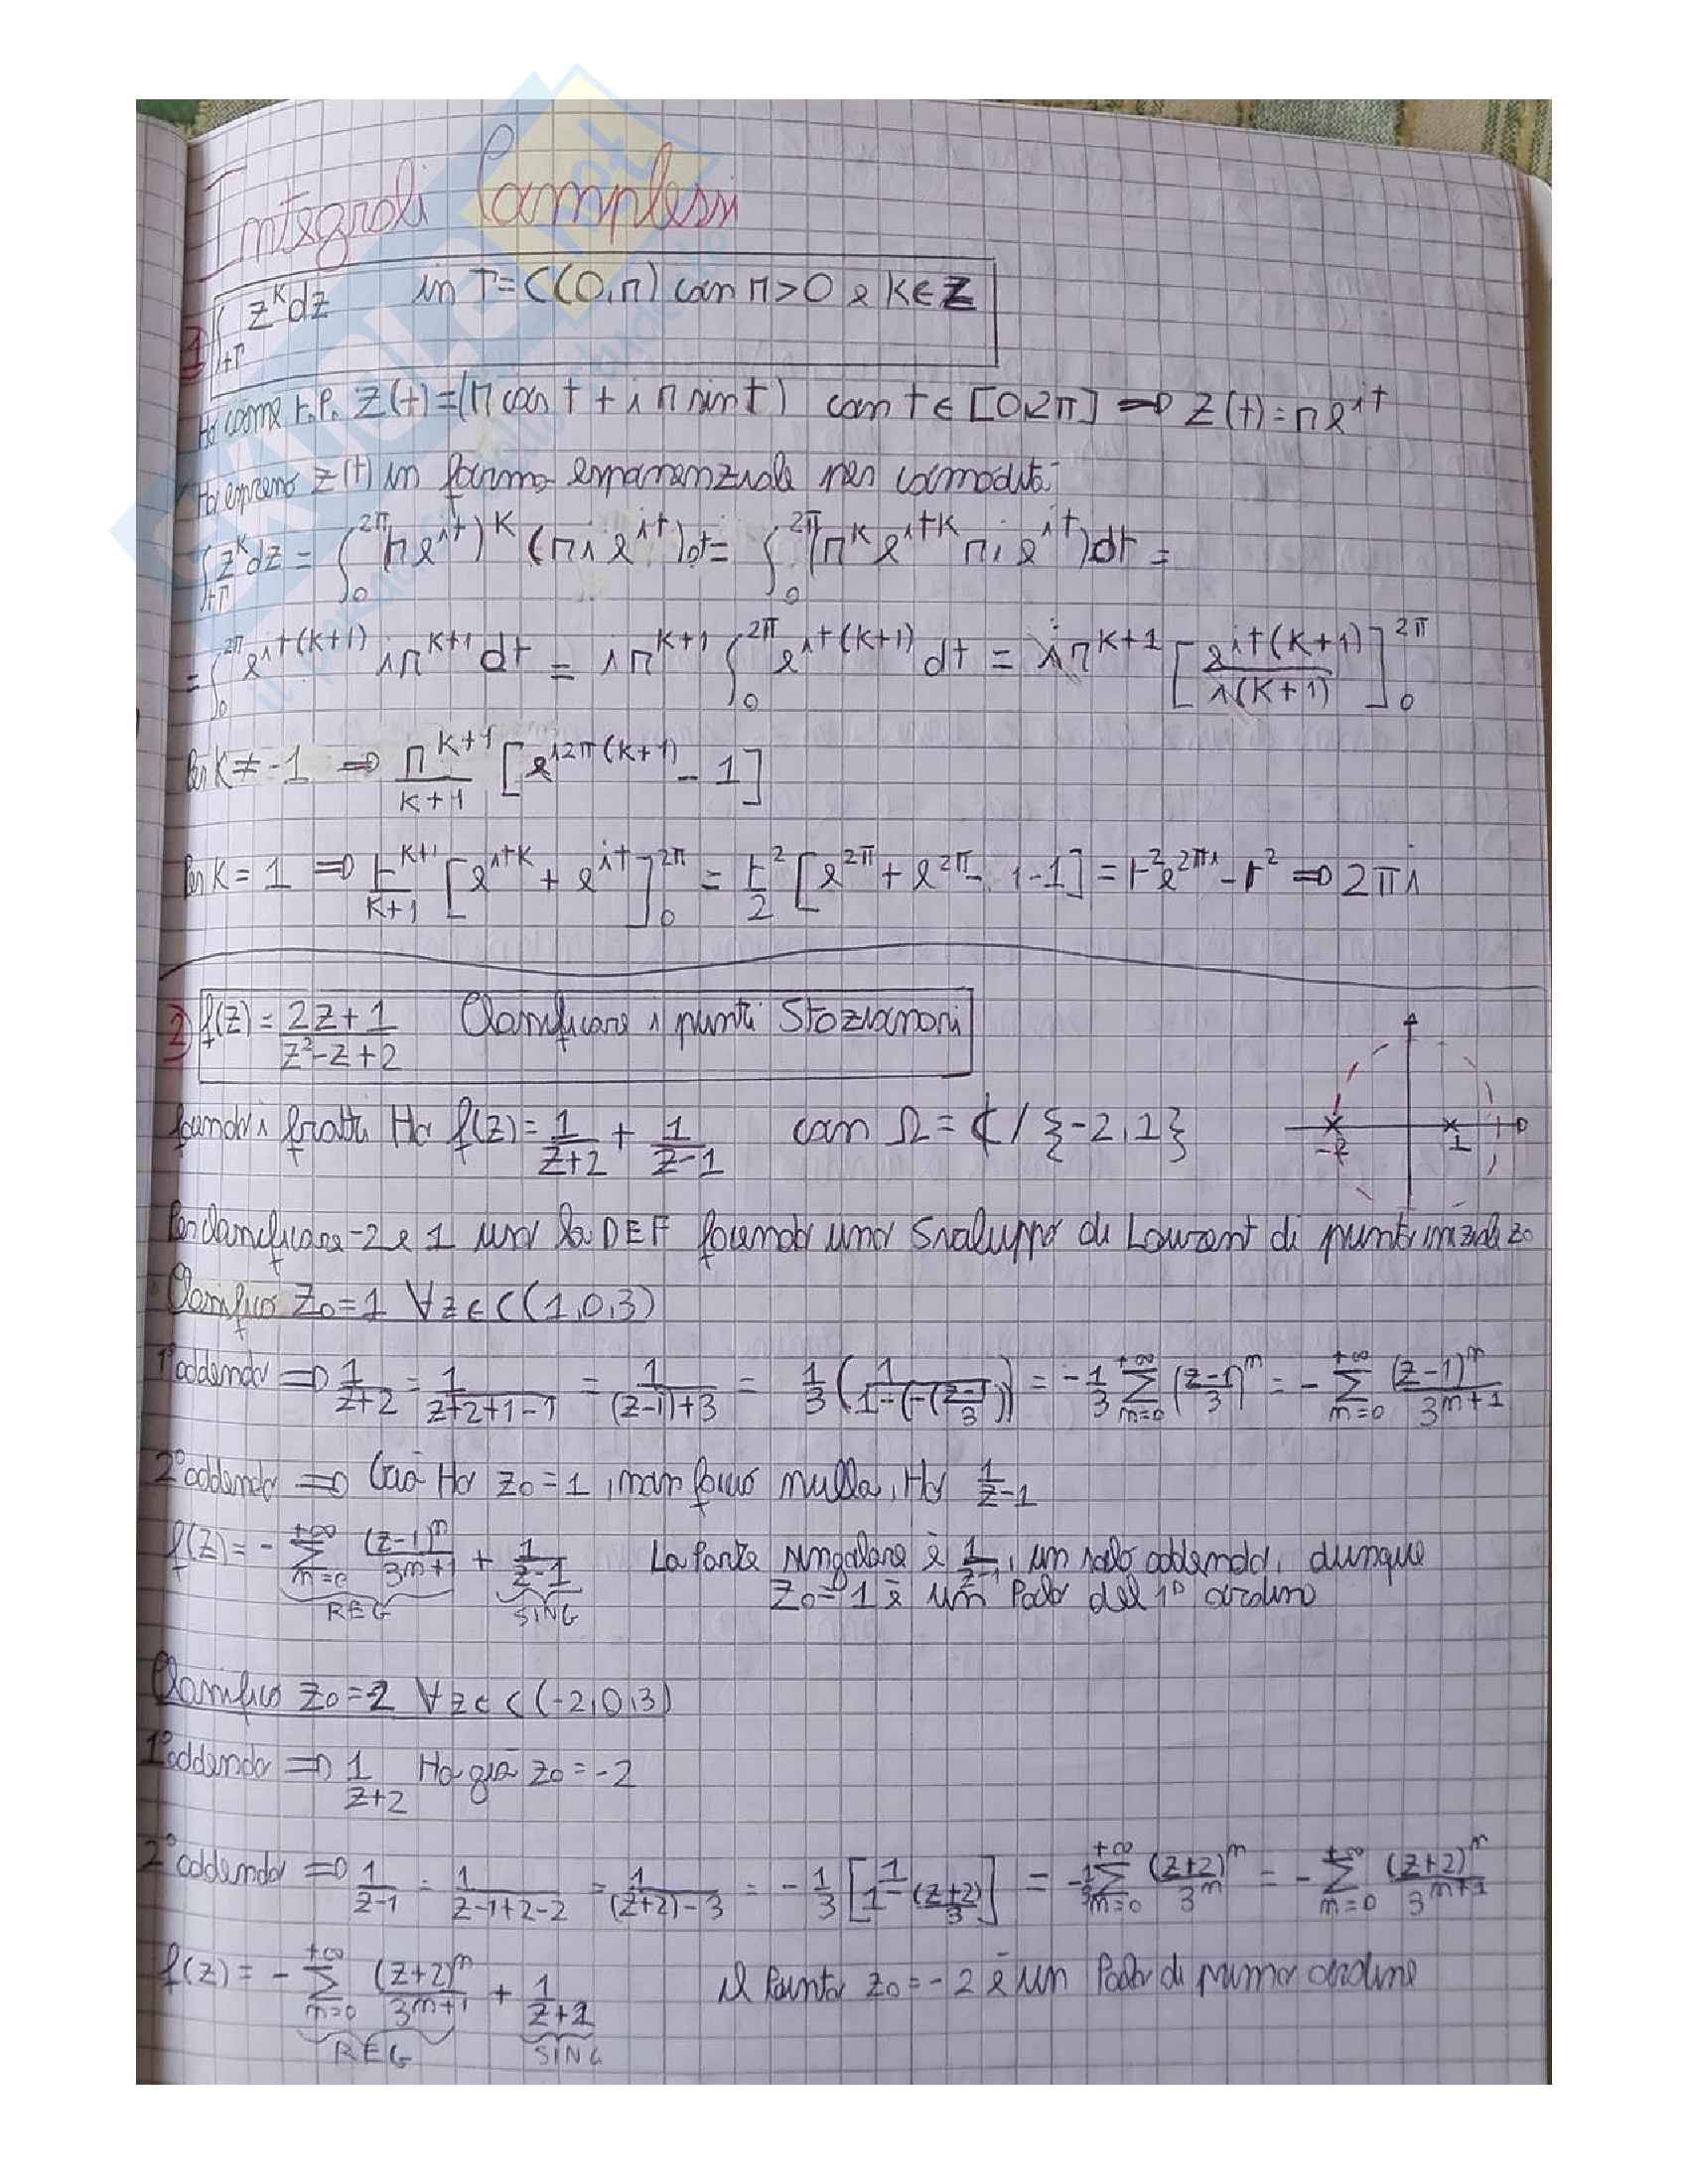 Integrali Complessi
1) ∫_{+Γ} z^k dz in Γ=C(0,r) con r>0 e k∈Z
Ho come r.p. z(t)=(r cos t + i r sin t) con t∈[0,2π] ⇒ z(t)=r e^{it}
Ho espresso z(t) in forma esponenziale per comodità:
∫_{+Γ} z^k dz = ∫_0^{2π} (r e^{it})^k (r i e^{it}) dt = ∫_0^{2π} (r^k e^{itk} r i e^{it}) dt =
= ∫_0^{2π} e^{it(k+1)} i r^{k+1} dt = i r^{k+1} ∫_0^{2π} e^{it(k+1)} dt = i r^{k+1} [e^{it(k+1)}/i(k+1)]_0^{2π}
Per k≠-1 ⇒ r^{k+1}/k+1 [e^{i2π(k+1)} - 1]
Per k=1 ⇒ r^{k+1}/k+1 [e^{itk} + e^{it}]_0^{2π} = r^2/2 [e^{2π} + e^{2π} - 1 - 1] = r^2 e^{2πi} - r^2 ⇒ 2πi
2) f(z) = 2z+1/z²-z+2 Classificare i punti Stazionari
facendo i fratti Ho f(z) = 1/z+2 + 1/z-1 con Ω = ℂ/{-2,1}
-2 1
Per classificare -2 e 1 uso la DEF facendo uno Sviluppo di Laurent di punti iniziali z0
Classifico z0=1 ∀z∈C(1,0,3)
1° addendo ⇒ 1/z+2 = 1/z+2+1-1 = 1/(z-1)+3 = 1/3 (1/1-(-(z-1/3))) = -1/3 Σ_{n=0}^{+∞} (z-1/3)^n = - Σ_{n=0}^{+∞} (z-1)^n/3^{n+1}
2° addendo ⇒ Già Ho z0=1, non faccio nulla, Ho 1/z-1
f(z) = - Σ_{n=0}^{+∞} (z-1)^n/3^{n+1} + 1/z-1 La parte singolare è 1/z-1, un solo addendo, dunque
REG SING z0=1 è un Polo del 1° ordine
Classifico z0=-2 ∀z∈C(-2,0,3)
1° addendo ⇒ 1/z+2 Ho già z0=-2
2° addendo ⇒ 1/z-1 = 1/z-1+2-2 = 1/(z+2)-3 = -1/3 [1/1-(z+2)/3] = -1/3 Σ_{n=0}^{+∞} (z+2)^n/3^n = - Σ_{n=0}^{+∞} (z+2)^n/3^{n+1}
f(z) = - Σ_{n=0}^{+∞} (z+2)^n/3^{n+1} + 1/z+2 Il Punto z0=-2 è un Polo di primo ordine
REG SING